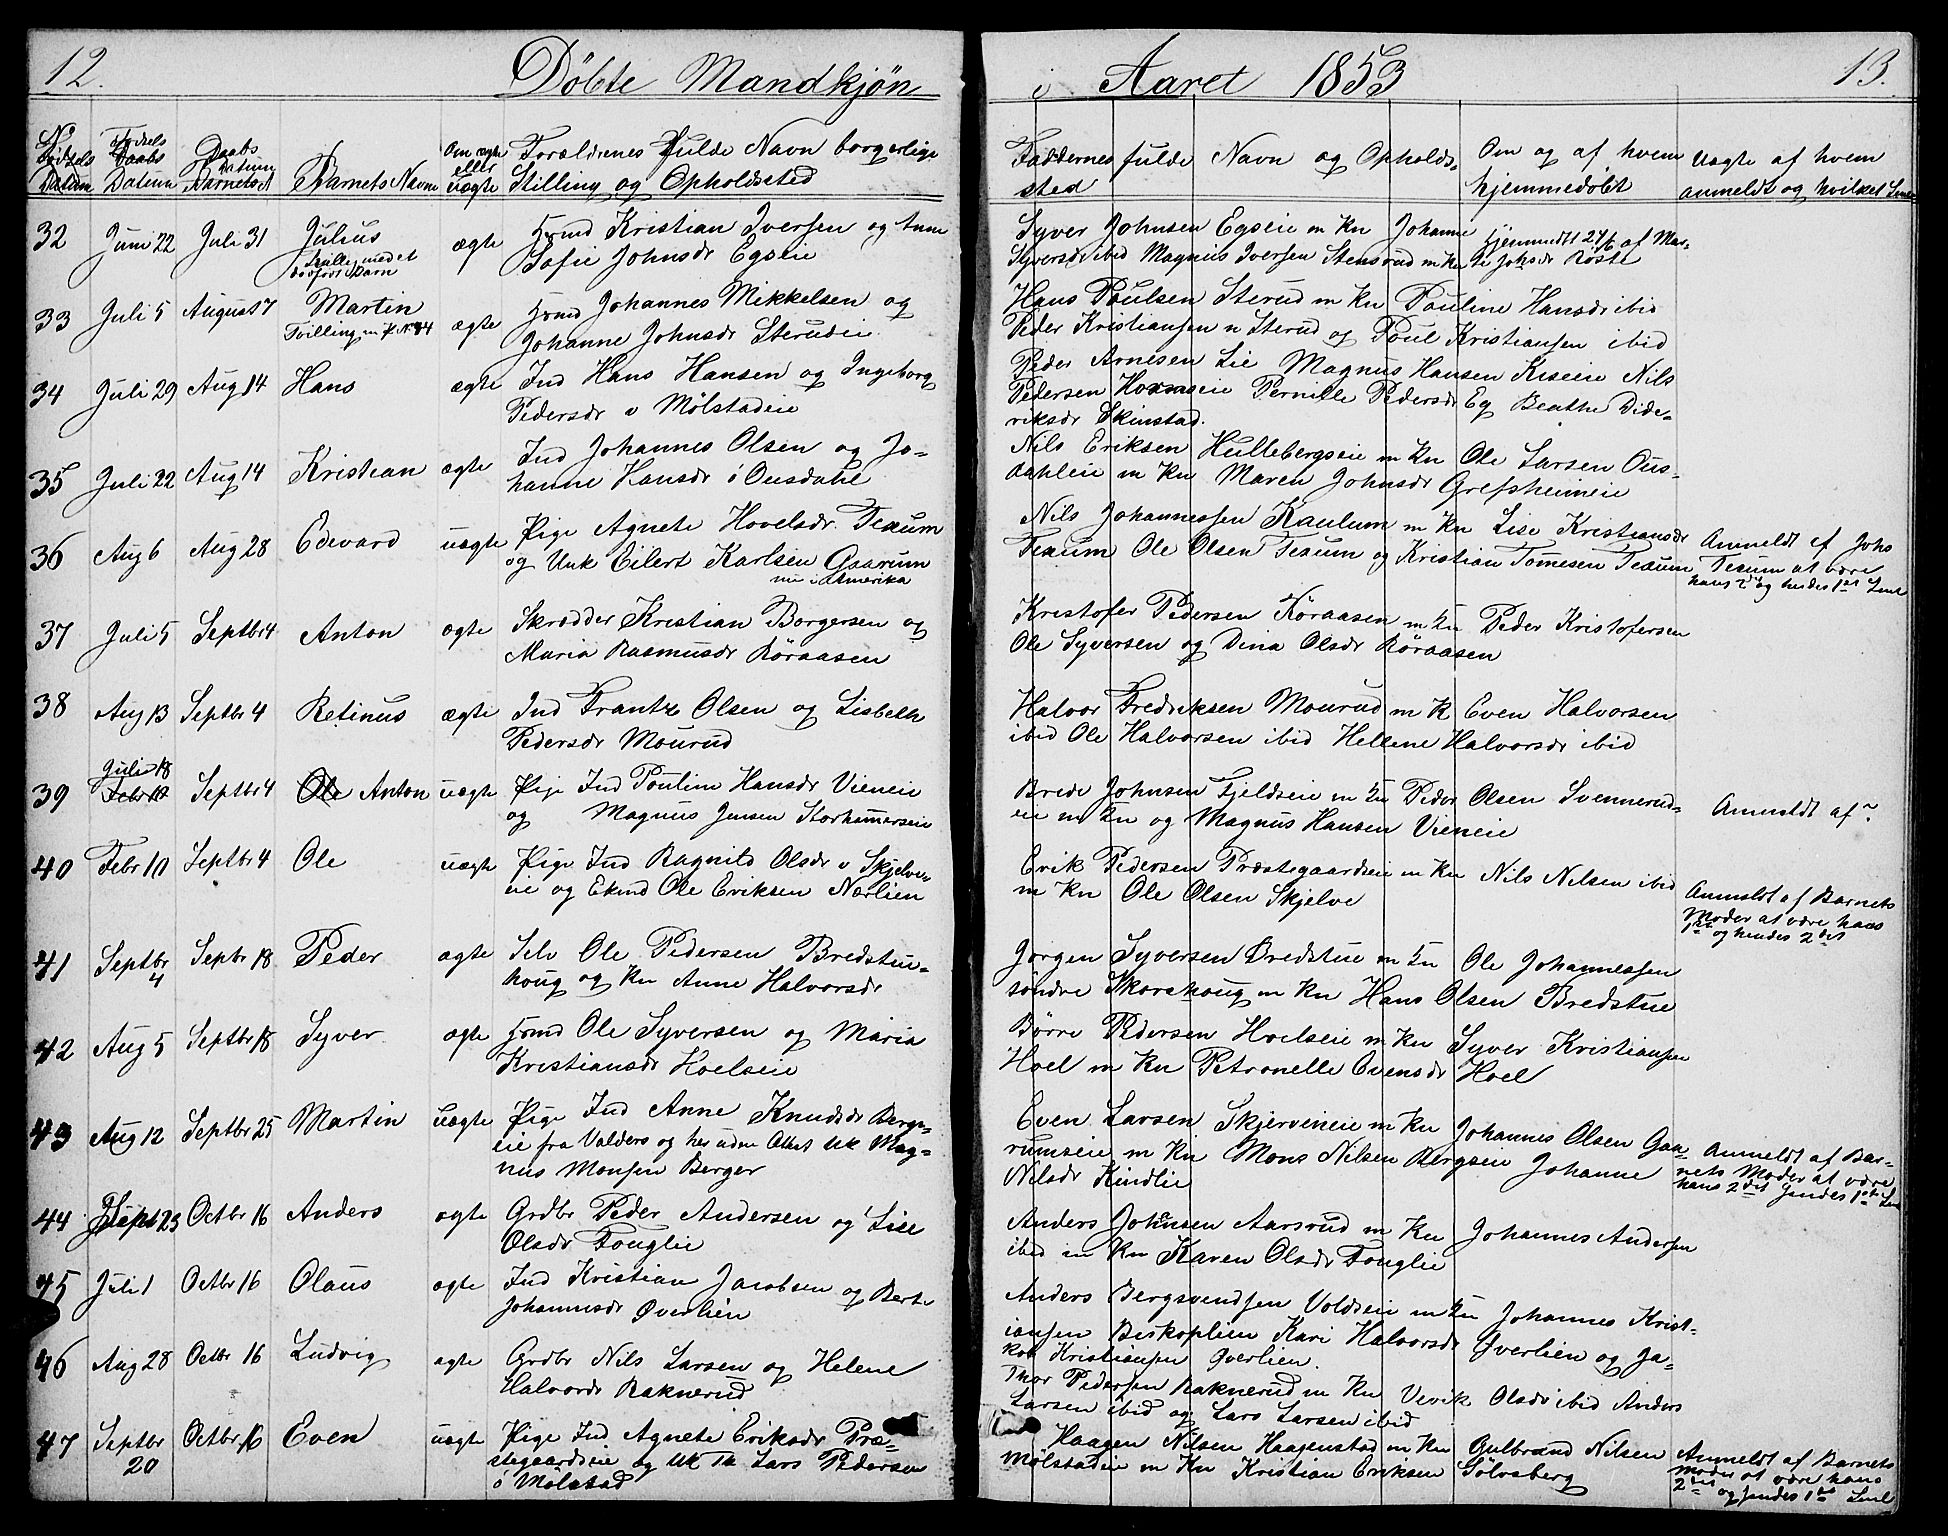 12.
Döbte Mandkjön
No
Fødsels Datum
Daabs Datum
Barnets Navn
Om ægte eller uægte
Forældrenes fulde Navn borgerlige
Stilling og Opholdssted
32 Juni 22 Juli 31 Julius ægte Hmd Kristian Iversen og Anne
Tvilling med et
dødfødt Barn
Sofie Johnsdr Egseie
33 Juli 5 August 7 Martin ægte Hmd Johannes Mikkelsen og
Tvilling m P. N 34
Johanne Johnsdr Sterudei
34 Juli 29 Aug 14 Hans ægte Ind Hans Hansen og Ingeborg
Pedersdr v Mölstadeie
35 Juli 22 Aug 14 Kristian ægte Ind Johannes Olsen og Jo-
hanne Hansdr i Ousdahl
36 Aug 6 Aug 28 Edevard uægte Pige Agnete Hovelsdr Texum
og Unk Eilert Karlsen Gaarum
nu i Amerika
37 Juli 5 Septbr 4 Anton ægte Skrædder Kristian Borgersen og
Maria Rasmusdr Röraasen
38 Aug 13 Septbr 4 Retinus ægte Ind Frantz Olsen og Lisbeth
Pedersdr Mourud
Juli 18
39 Febr 10 Septbr 4 Ole Anton uægte Pige Ind Pouline Hansdr Vieneie
og Magnus Jensen Storhamerseie
40 Febr 10 Septbr 4 Ole uægte Pige Ind Ragnild Olsdr v Skjelve-
eie og Ekmd Ole Eriksen Nærlien
41 Septbr 4 Septbr 18 Peder ægte Selv Ole Pedersen Bredstue-
houg og Kn Anne Halvorsdr
42 Aug 5 Septbr 18 Syver ægte Hmd Ole Syversen og Maria
Kristiansdr Hoelseie
43 Aug 12 Septbr 25 Martin Uægte Pige Ind Anne Knudsdr Berge-
eie fra Valders og her uden Attest Uk Mag-
nus Monsen Berger
44 Sept 23 Octbr 16 Anders ægte Grdbr Peder Andersen og Lise
Olsdr Fouglie
45 Juli 1 Octbr 16 Olaus ægte Ind Kristian Jacobsen og Berte
Johannesdr Øverlien
46 Aug 28 Octbr 16 Ludvig ægte Grdbr Nils Larsen og Helene
Halvorsdr Baknerud
47 Septbr 20 Octbr 16 Even uægte Pige Ind Agnete Eriksdr Præ-
stegaardseie og Uk Th Lars Pedersen
v Mölstad
i Aaret 1853
13.
Faddernes fulde Navn og Opholds-
sted
Om og af hvem
hjemmedöbt
Uægte af hvem
anmeldt og hvilket Leie
Syver Johnsen Egseie m Kn Johanne
Syversdr ibid Magnus Iversen Stensrud m Kn
Hjemmedt 24/6 af Mar-
te Johsdr Röste
Hans Poulsen Sterud m Kn Pouline Hansdr ibid
Peder Kristiansen n Sterud og Poul Kristiansen ibid
Peder Arnesen Lie Magnus Hansen Kiseie Nils
Pedersen Hoxmeie Pernille Pedersdr Eg Beathe Dide-
riksdr Skinstad.
Nils Eriksen Hullebergseie m Kn Ole Larsen Ous-
dahleie m Kn Maren Johnsdr Grefsheimeie
Nils Johannessen Kaulum m Kn Lise Kristiansdr
Texum Ole Olsen Texum og Kristian Tomesen Texum
Anmeldt af Johs
Texum at være
hans 2det og hendes 1ste Leie
Kristofer Pedersen Röraasen m Kn Peder Kristofersen
Ole Syversen og Dina Olsdr Röraasen
Halvor Fredriksen Mourud m K Even Halvorsen
ibid Ole Halvorsen ibid Hellene Halvorsdr ibid
Brede Johnsen Fjeldseie m Kn Peder Olsen Svennerud-
eie m Kn og Magnus Hansen Vieneie
Anmeldt af ~
Erik Pedersen Præstegaardseie m Kn Nils Nilsen ibid
m Kn Ole Olsen Skjelve
Anmeldt af Barnets
Moder at være hans
1ste og hendes 2det
Jørgen Syversen Bredstue m Kn Ole Johannessen
söndre Skarshoug m Kn Hans Olsen Bredstue
Börre Pedersen Hoelseie m Kn Syver Kristiansen
Hoel m Kn Petronelle Evensdr Hoel
Even Larsen Skjerveneie m Kn Johannes Olsen Gaa-
rumseie m Kn Mons Nilsen Bergseie Johanne
Nilsdr Kindlie
Anmeldt af Bar-
nets Moder at være
hans 2det hendes 1ste Leie
Anders Johnsen Aarsrud m Kn Johannes Andersen
ibid m Kn Karen Olsdr Fouglie
Anders Bergsvendsen Voldseie m Kn Johannes Krist-
iansen Biskoplien Kari Halvorsdr Øverlien og Ja-
kob Kristiansen Øverlien.
Thor Pedersen Baknerud m Kn Verik Olsdr ibid Anders
Larsen ibid og Lars Larsen ibid
Haagen Nilsen Haagenstad m Kn Gulbrand Nilsen
Mölstadeie m Kn Kristian Eriksen Sölvsberg
Anmeldt af Barnets
Moder at være hans
2det og hendes 1ste Leie